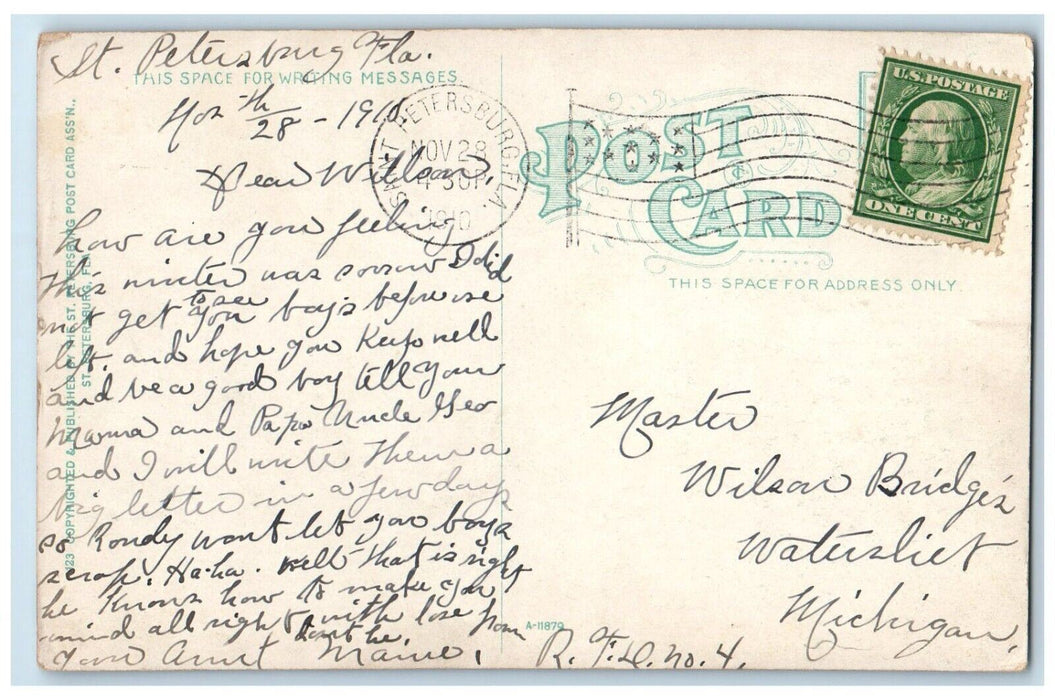 St. Petersburg Fla.
THIS SPACE FOR WRITING MESSAGES
Nov 28th - 1910
Dear Wilson,
how are you feeling
this winter was sorrow I did
not get to see you boys before we
left. and hope you Keep well
and be a good boy tell your
Mama and Papa Uncle Geo
and I will write them a
big letter in a few days
so Rondy wont let you boys
scrap. Ha-ha. well that is right
he Knows how to make you
mind all right with love from
dont he.
your Aunt Mame.
123 COPYRIGHTED & PUBLISHED BY THE ST. PETERSBURG POST CARD ASS'N.,
ST. PETERSBURG, FLA.
SAINT PETERSBURG, FLA.
NOV 28
4 30 P
1910
POST CARD
U.S. POSTAGE
ONE CENT
THIS SPACE FOR ADDRESS ONLY.
Master
Wilson Bridges
Watervliet
Michigan,
R. F. D. no. 4.
A-11879